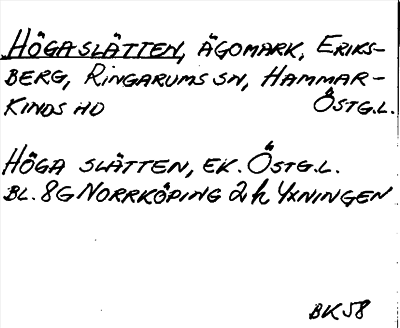 HÖGASLÄTTEN, ÄGOMARK, ERIKS-
BERG, RINGARUMS SN, HAMMAR-
KINDS HD ÖSTG.L.
HÖGA SLÄTTEN, EK. ÖSTG.L.
BL. 8G NORRKÖPING 2h YXNINGEN
BK58